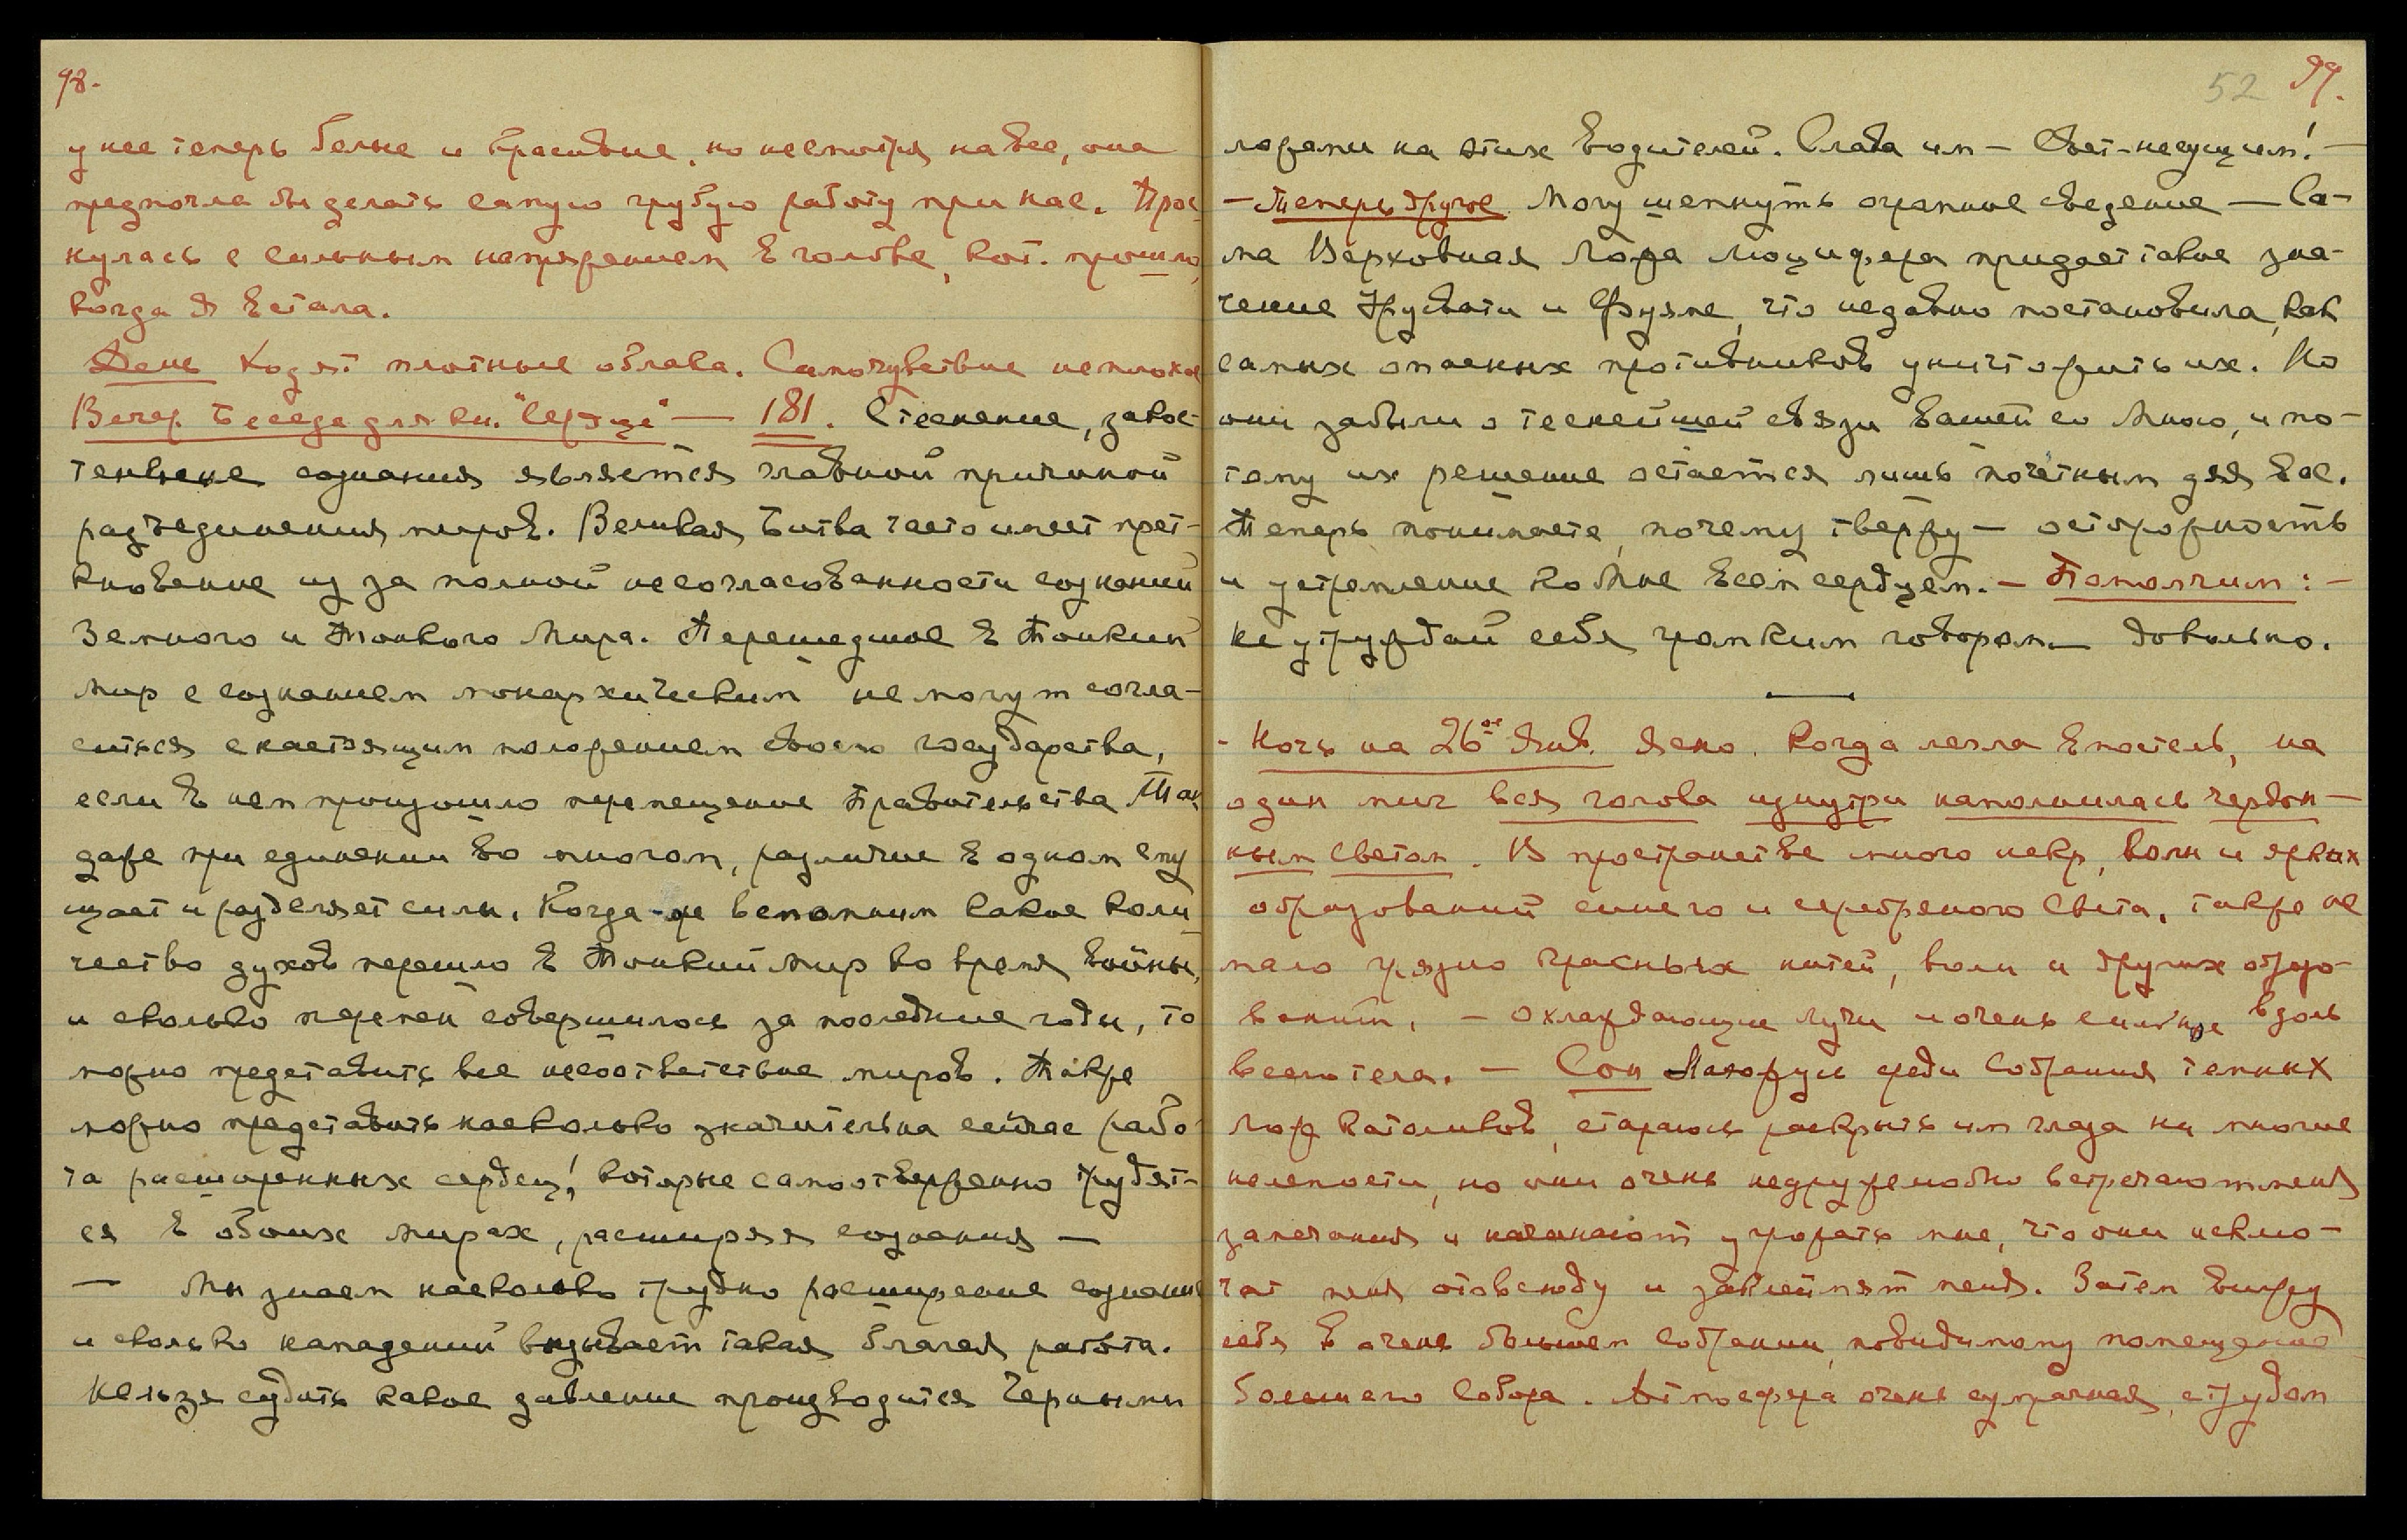 98.
у нее теперь белые и красивые, но несмотря на все, она
предпочла бы делать самую грубую работу при нас. Прос-
нулась с сильным напряжением в голове, кот. прошло,
когда я встала.
День Ходят плотные облака. Самочувствие неплохое
Вечер. Беседа для кн. "Сердце" — 181. Стеснение, закос-
тенение сознания является главной причиной
разъединения миров. Великая Битва часто имеет прет-
кновение из за полной несогласованности сознаний
Земного и Тонкого Мира. Перешедшие в Тонкий
Мир с сознанием монархическим не могут согла-
ситься с настоящим положением своего государства,
если в нем произошло перемещение Правительства Так
даже при единении во многом, различие в одном сму
щает и разделяет силы. Когда-же вспомним какое коли
чество духов перешло в Тонкий Мир во время войны,
и сколько перемен совершилось за последние годы, то
можно представить все несоответствие миров. Также
можно представить насколько значительна сейчас рабо
та расширенных сердец!, которые самоотверженно трудят-
ся в обоих мирах, расширяя сознания —
— Мы знаем насколько трудно расширение сознания
и сколько нападений вызывает такая благая работа.
Нельзя судить какое давление производится Черными
52 99.
ложами на этих водителей. Слава им — Свет-несущим! —
— Теперь другое Могу шепнуть огромное сведение — Са-
ма Верховная Ложа Люцифера придает такое зна-
чение Урусвати и Фуяме, что недавно постановила, как
самых опасных противников уничтожить их. Но
они забыли о теснейшей связи вашей со Мною, и по-
тому их решение остается лишь почётным для вас.
Теперь понимаете, почему твержу — осторожность
и устремление ко Мне всем сердцем. — Помолчим: —
Не утруждай себя громким говором — Довольно.
- Ночь на 26ое Янв. Ясно. Когда легла в постель, на
один миг вся голова изнутри наполнилась чердон-
ным светом. В пространстве много искр, волн и ярких
образований синего и серебряного света, также не
мало грязно красных нитей, волн и других образо-
ваний, — охлаждающие лучи и очень сильные вдоль
всего тела. — Сон Нахожусь среди собрания темных
лож католиков, стараюсь раскрыть им глаза на многие
нелепости, но они очень недружелюбно встречают мои
замечания и начинают угрожать мне, что они исклю-
чат меня отовсюду и заклеймят меня. Затем вижу
себя в очень большом собрании, повидимому помещение
большого Собора. Атмосфера очень сумрачная, с трудом